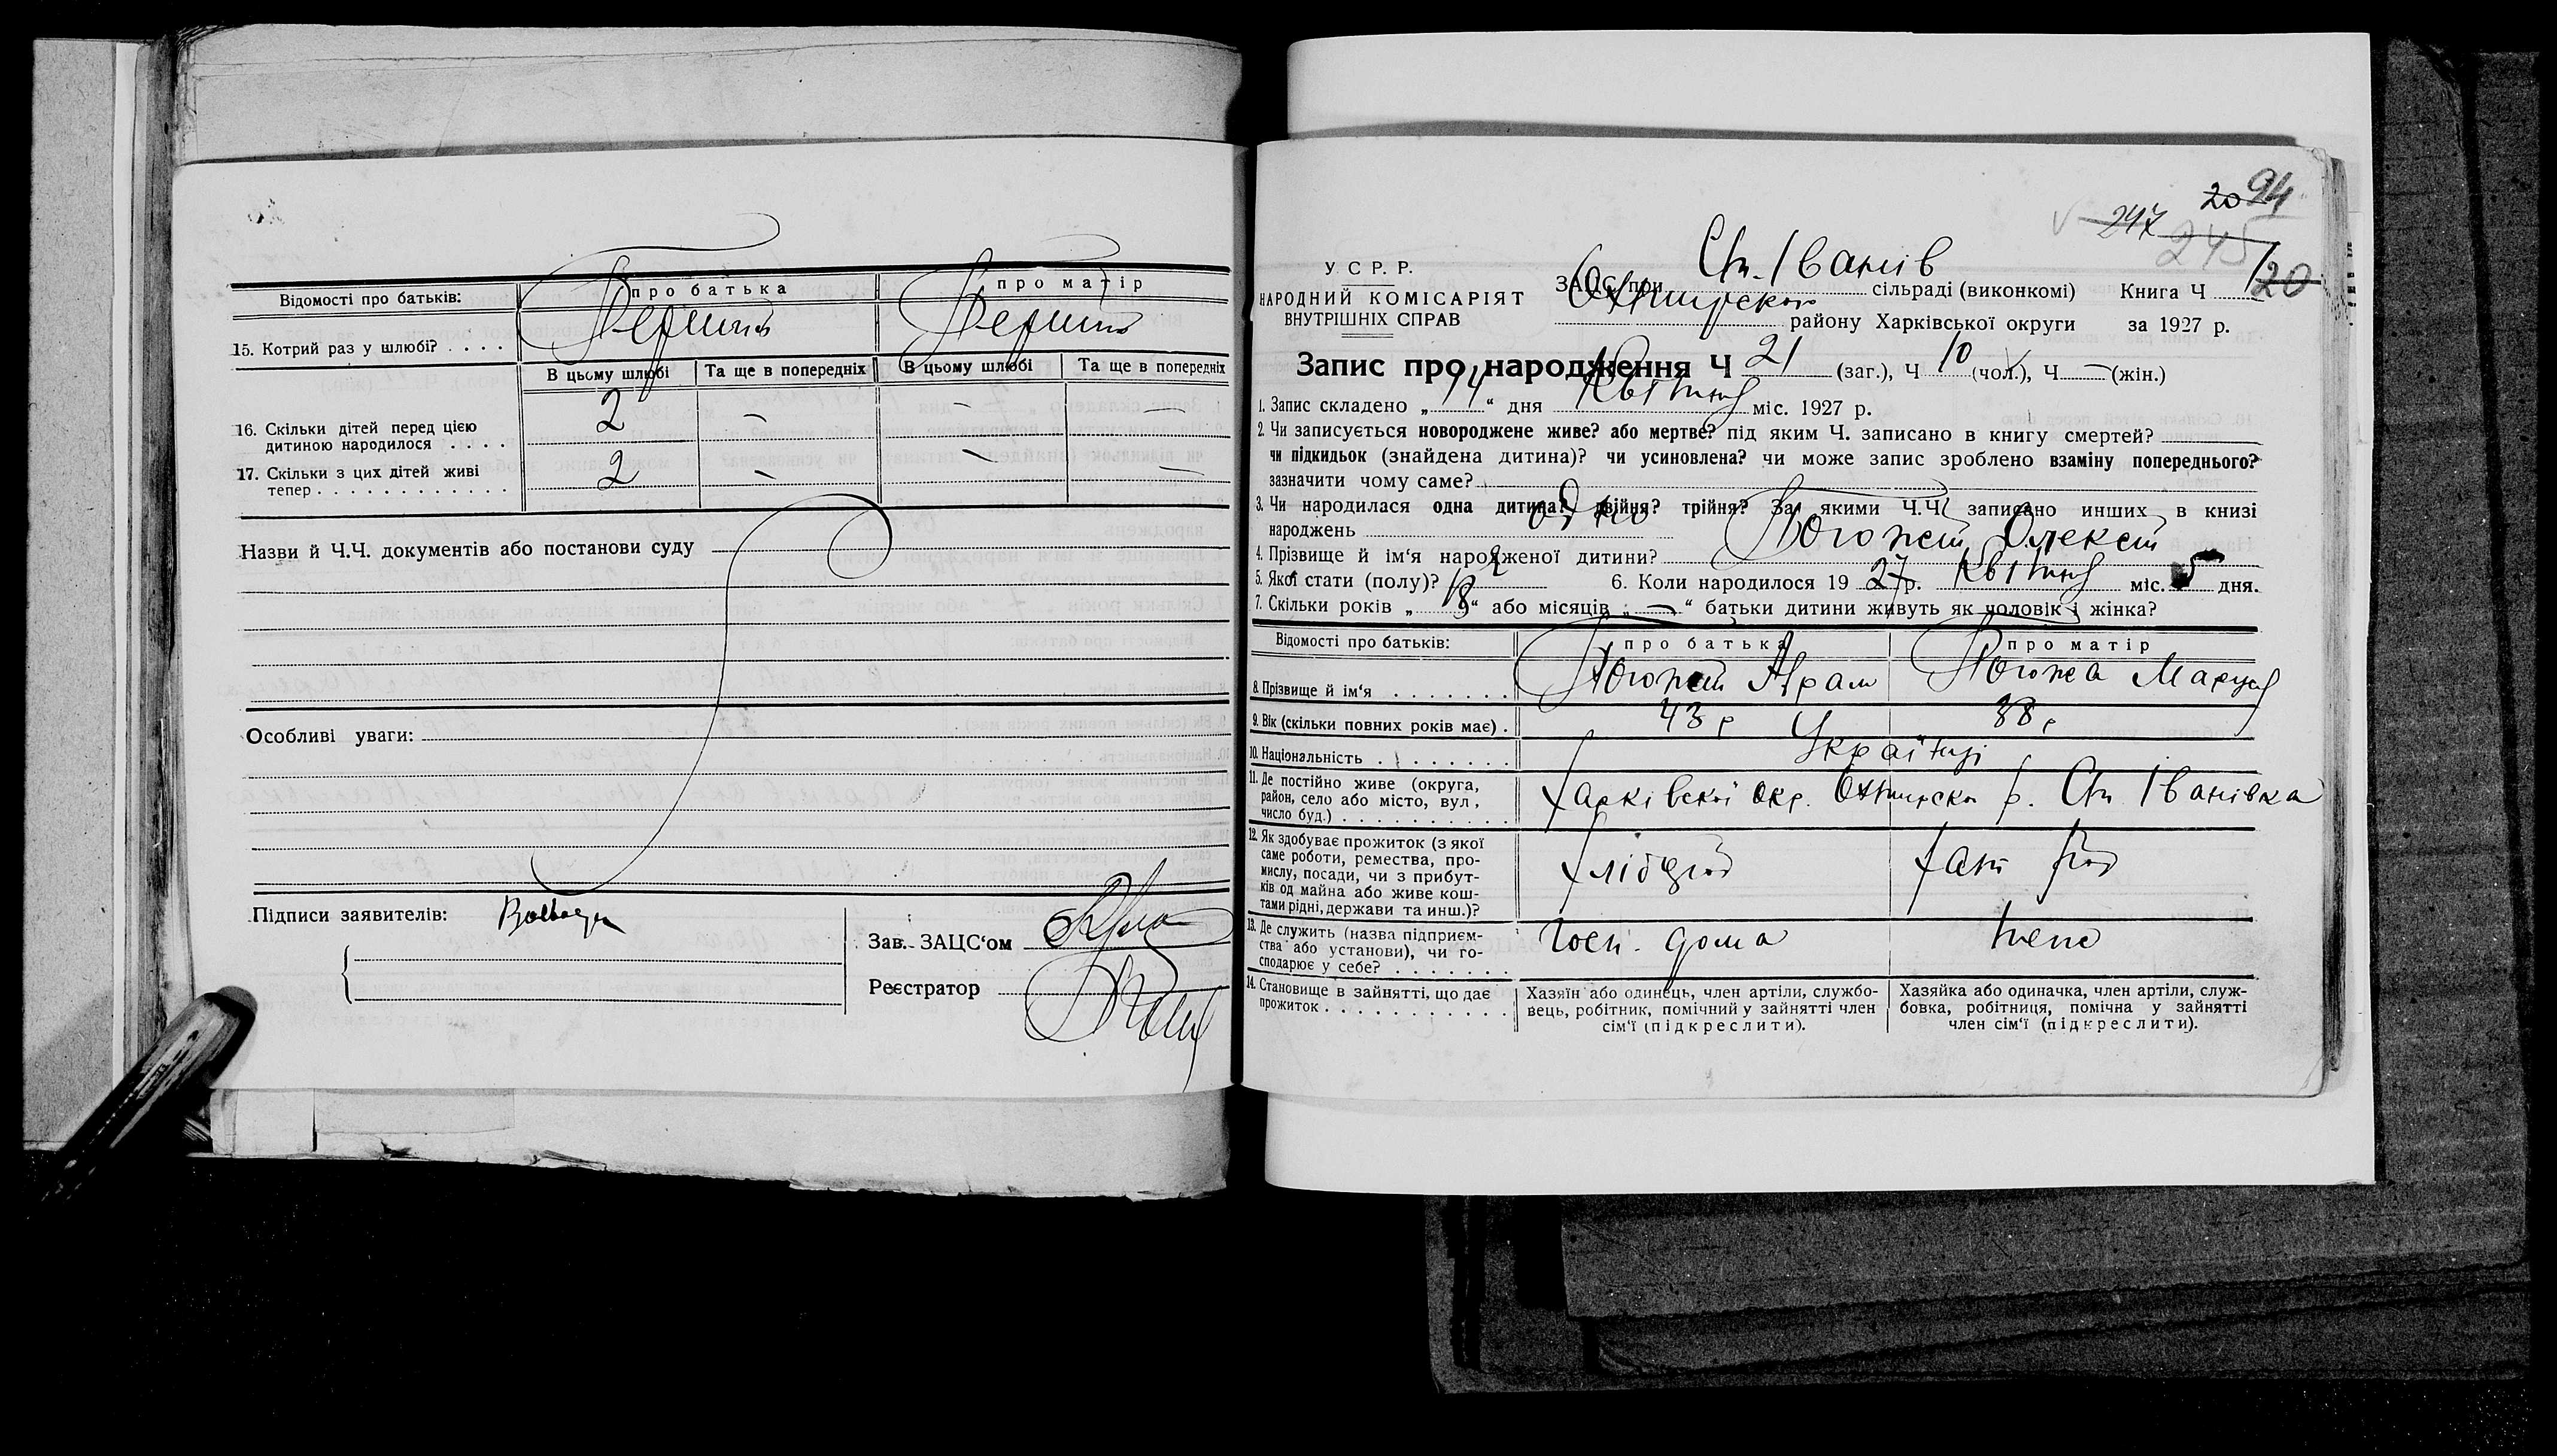 Відомості про батьків: про батька про матір
15. Котрий раз у шлюбі? . . . . Перший Перший
В цьому шлюбі Та ще в попередніх В цьому шлюбі Та ще в попередніх
16. Скільки дітей перед цією
дитиною народилося . . . . 2 – – –
17. Скільки з цих дітей живі
тепер . . . . . . . . . . . . 2 – – –
Назви й Ч.Ч. документів або постанови суду
Особливі уваги:
Підписи заявителів:
Зав. ЗАЦС'ом
Реєстратор
20 94
247
245
У С Р. Р.
НАРОДНИЙ КОМІСАРІЯТ
ВНУТРІШНІХ СПРАВ
ЗАЦС при Ст. Іванів сільраді (виконкомі) Книга Ч 1/20
Охтирскої району Харківської округи за 1927 р.
Запис про народження Ч 21 (заг.), Ч 10 (чол.), Ч — (жін.)
1. Запис складено „ 14 “ дня Квітня міс. 1927 р.
2. Чи записується новороджене живе? або мертве? під яким Ч. записано в книгу смертей?
чи підкидьок (знайдена дитина)? чи усиновлена? чи може запис зроблено взаміну попереднього?
зазначити чому саме?
3. Чи народилася одна дитина? двійня? трійня? За якими Ч.Ч. записано инших в книзі
народжень одно
4. Прізвище й ім'я народженої дитини? Погожий Олексій
5. Якої стати (полу)? Ч 6. Коли народилося 19 27 р. Квітня міс. 5 дня.
7. Скільки років „ 18 “ або місяців „ — “ батьки дитини живуть як чоловік і жінка?
Відомості про батьків: про батька про матір
8. Прізвище й ім'я . . . . . . . Погожий Абрам Погожа Мария
9. Вік (скільки повних років має) . 43 р 38 р
10. Національність . . . . . . . . Українці
11. Де постійно живе (округа,
район, село або місто, вул.,
число буд.) . . . . . . . . . . Харківскої окр. Охтирскої р. Ст Іванівка
12. Як здобуває прожиток (з якої
саме роботи, ремества, про-
мислу, посади, чи з прибут-
ків од майна або живе кош-
тами рідні, держави та инш.)? Хлібороб
13. Де служить (назва підприєм-
ства або установи), чи го-
сподарює у себе? . . . . . . . Госп. дома теж
14. Становище в зайнятті, що дає
прожиток . . . . . . . . . . .
Хазяїн або одинець, член артіли, службо-
вець, робітник, помічний у зайнятті член
сім'ї (підкреслити).
Хазяйка або одиначка, член артіли, служ-
бовка, робітниця, помічна у зайнятті
член сім'ї (підкреслити).